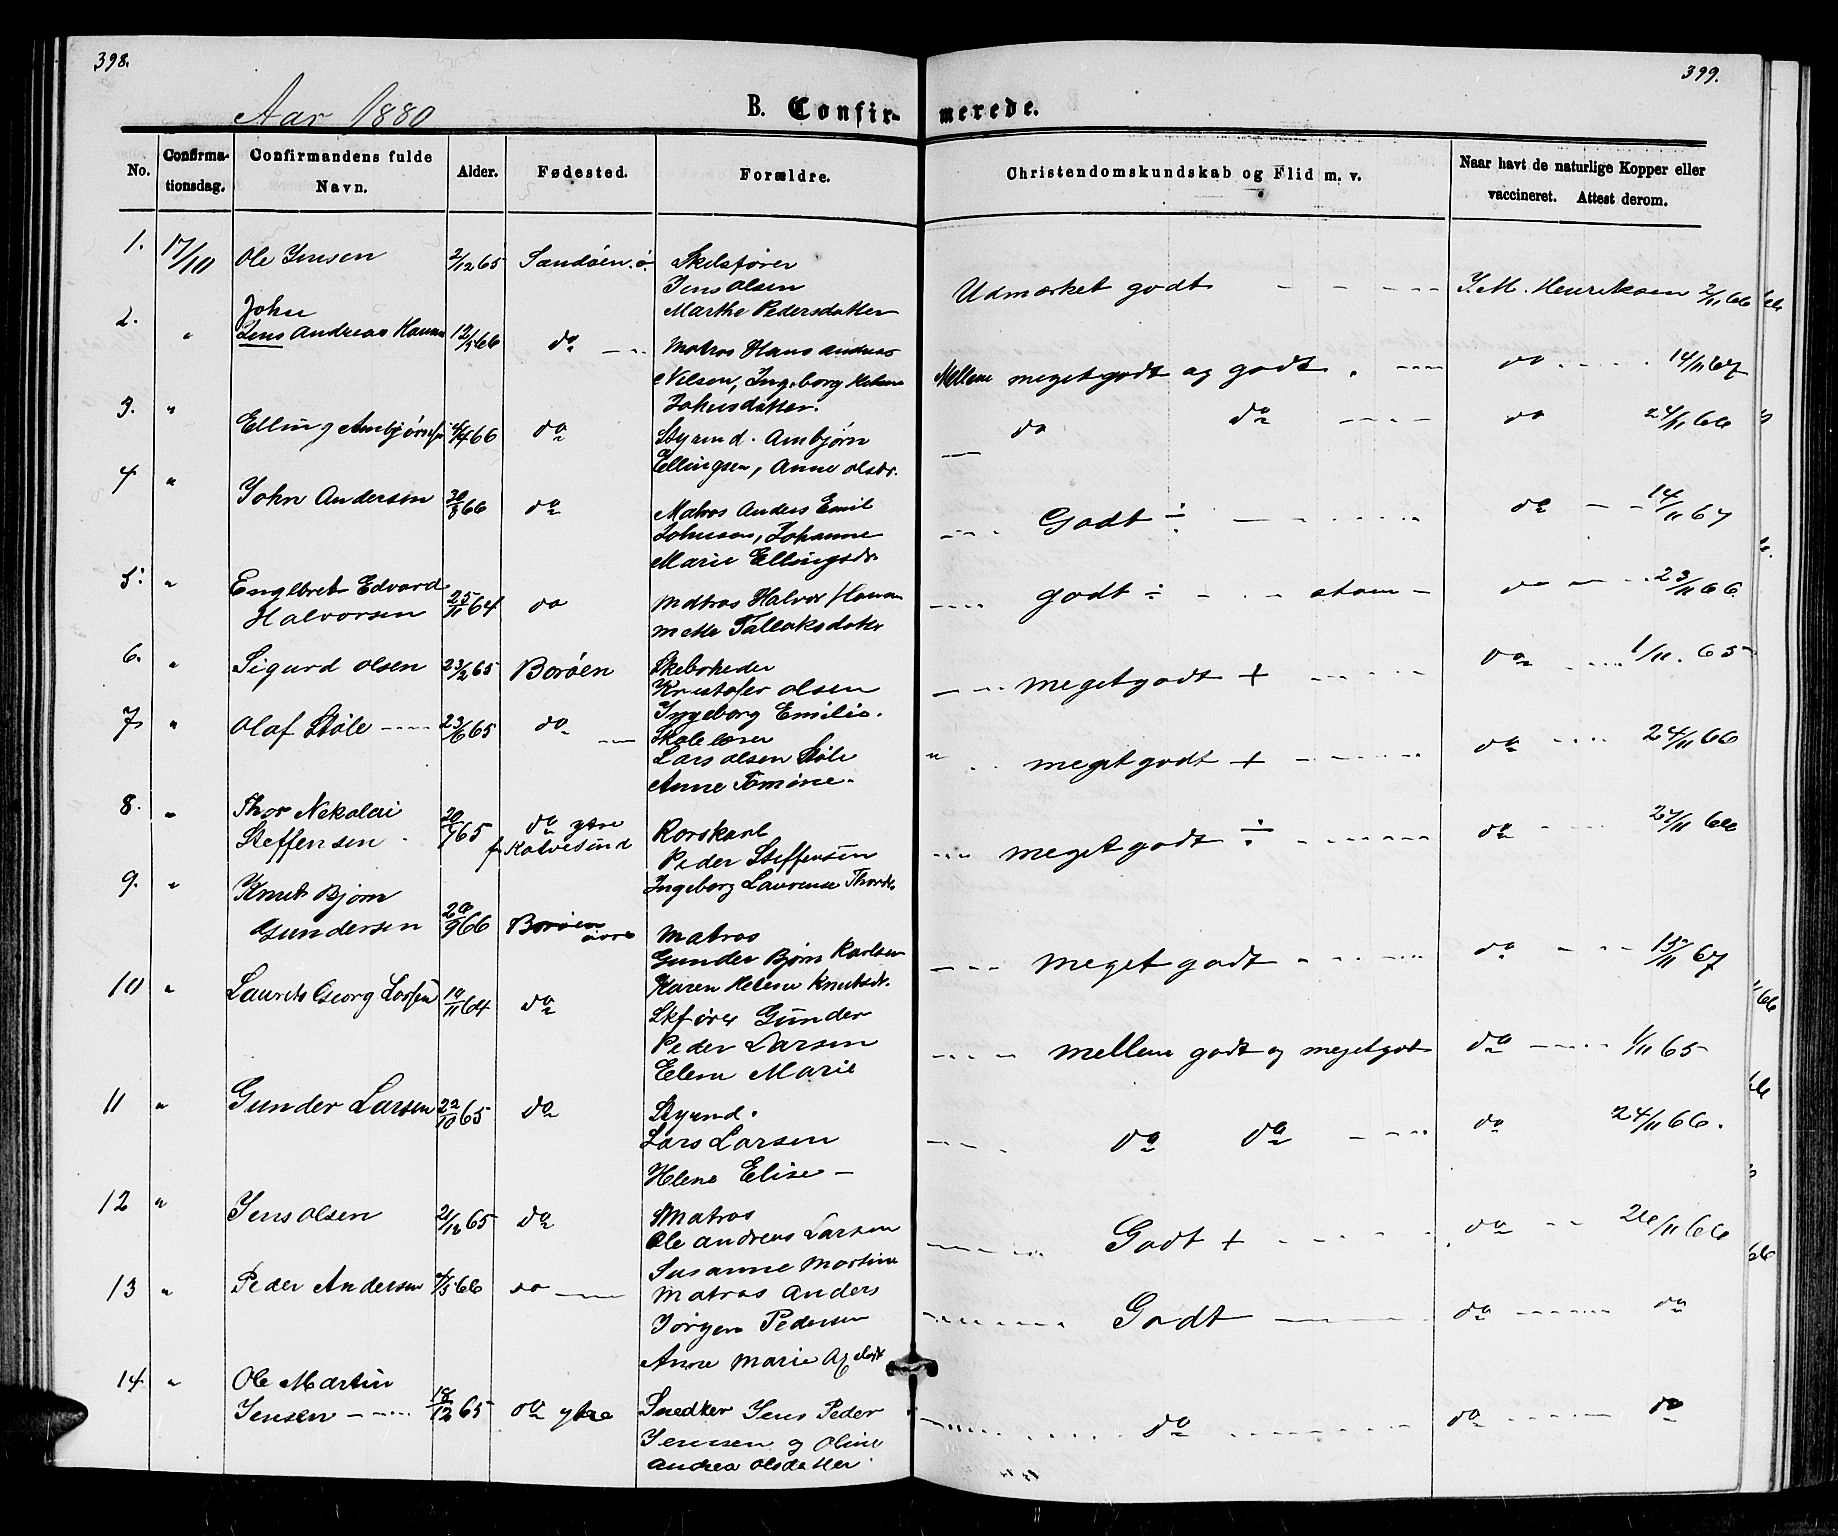 398.
399.
Aar 1880
B. Confir-
merede.
No.
Confirma-
tionsdag.
Confirmandens fulde
Navn.
Alder.
Fødested.
Forældre.
Christendomskundskab og Flid m. v.
Naar havt de naturlige Kopper eller
vaccineret. Attest derom.
1. 17/10 Ole Jensen 2/12 65 Sandöen. ö.
Jens Olsen
Marthe Pedersdatter
Udmærket godt J. M. Henriksen 2/11 66
2. " John
Jens Andreas Hansen 12/5 66 do
Matros Hans Andreas
Nilsen, Ingeborg Helene
Johnsdatter.
Mellem meget godt og godt do 14/11 67
3. " Elling Ambjörnsen 4/4 66 do
Styrmd. Ambjörn
Ellingsen, Anne Olsdr.
do do do 24/11 66
4 " John Andersen 30/8 66 do
Matros Anders Emil
Johnsen, Johanne
Marie Ellingsdr.
Godt ÷ do 14/11 67
5. " Englbret Edvard
Halvorsen 25/11 64 do
Matros Halvor Hansen
Mette Tallaksdatter
godt ÷ do 23/11 66
6. " Sigurd Olsen 23/2 65 Boröen
Kristofer Olsen
Ingeborg Emilie.
meget godt + do 1/11. 65
7. " Olaf Støle 23/6 65 do
Skolelærer
Lars Olsen Støle
Anne Tomine.
meget godt + do 24/11 66
8. " Thor Nikolai
Steffensen 20/7 65 do ytre
f. Kalvesund
Rorskarl
Peder Steffensen
Ingeborg Laurense Thorsdr.
meget godt ÷ do 24/11 66
9. " Knut Björn
Gundersen 20/9 66 Boröen
Matros
Gunder Björn Karlsen
Karen Helene Knutsdr.
meget godt do 15/11 67
10 " Laurits Georg Larsen 10/11 64 do
Skfører Gunder
Peder Larsen
Elene Marie
mellem godt og meget godt do 1/11 65
11 " Gunder Larsen 22/10 65 do
Styrmd.
Lars Larsen
Helene Elise
do do do 24/11 66.
12 " Jens Olsen 21/12 65 do
Matros
Ole Andreas Larsen
Susanne Martine
Godt + do 24/11 66
13 " Peder Andersen 4/5 66 do
Matros Anders
Jörgen Pedersen
Anne Marie
Godt do do
14 " Ole Martin
Jensen 18/12 65 do ytre
Snedker Jens Peder
Jensen og Oline
Andrea Olsdatter.
do do do